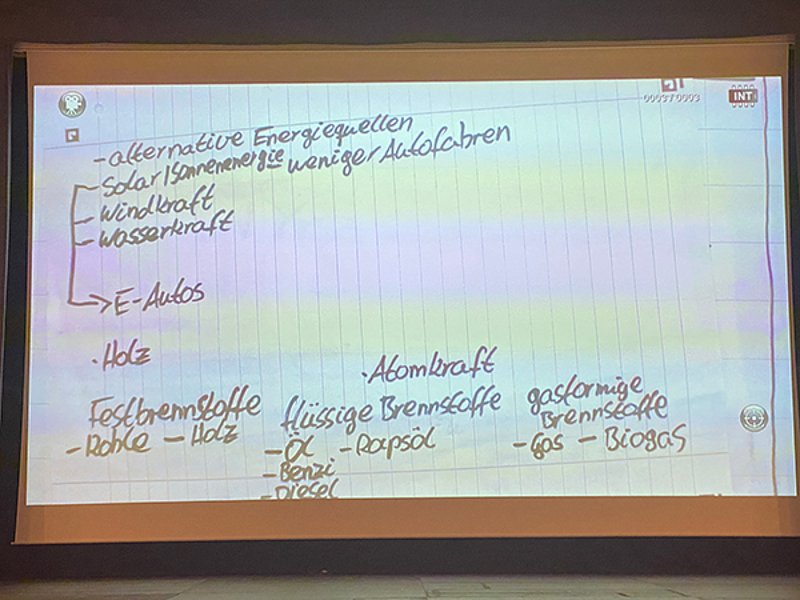 0003/0003
INT
- alternative Energiequellen
- Solar/Sonnenenergie - weniger Autofahren
- Windkraft
- Wasserkraft
→ E-Autos
· Holz
· Atomkraft
Festbrennstoffe flüssige Brennstoffe gasformige Brennstoffe
- Kohle - Holz - Öl - Rapsöl - Gas - Biogas
- Benzi
- Diesel